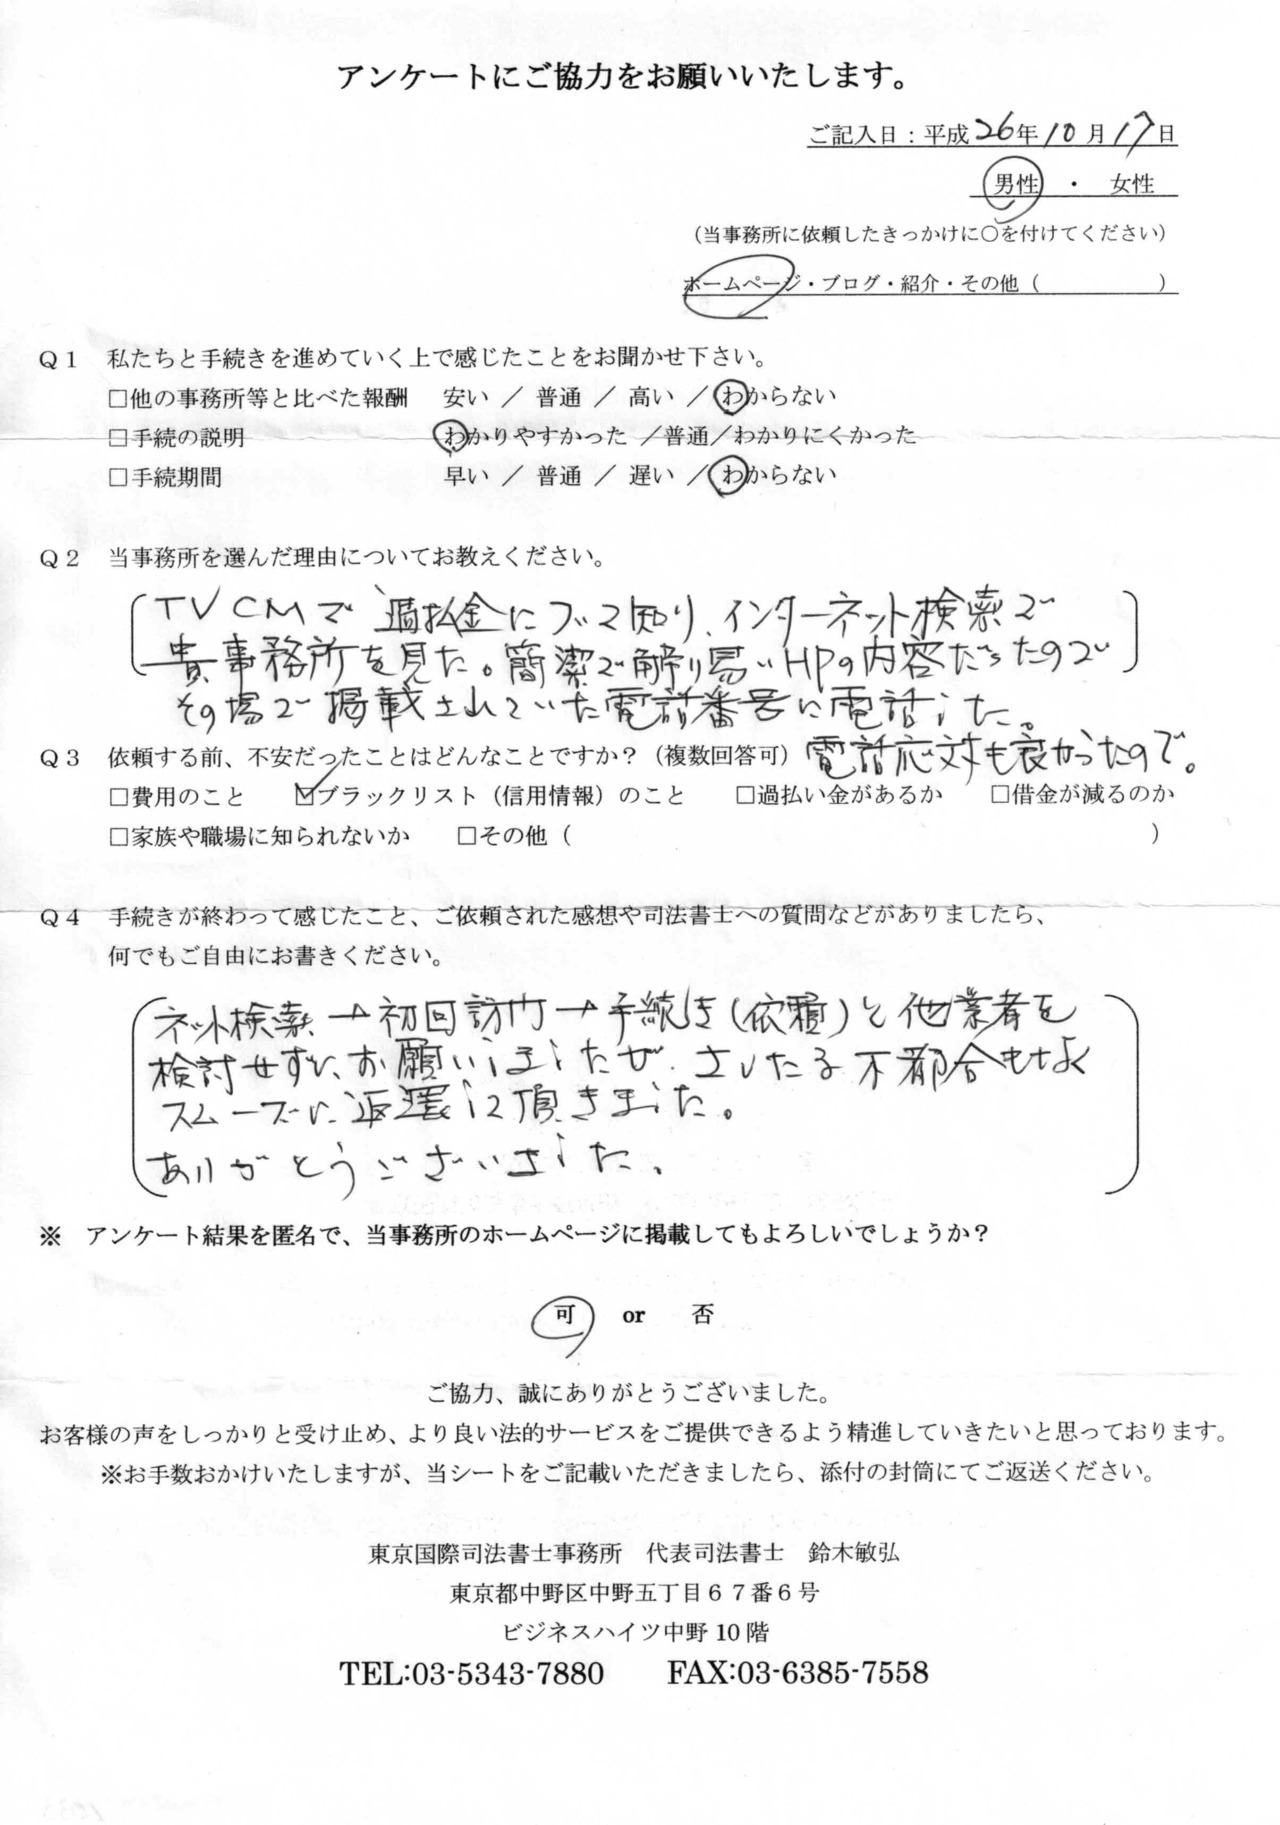 アンケートにご協力をお願いいたします。
ご記入日：平成26年10月17日
男性 ・ 女性
（当事務所に依頼したきっかけに○を付けてください）
ホームページ・ブログ・紹介・その他（　　　　　）
Q1 私たちと手続きを進めていく上で感じたことをお聞かせ下さい。
□他の事務所等と比べた報酬 安い ／ 普通 ／ 高い ／ わからない
□手続の説明 わかりやすかった ／普通／わかりにくかった
□手続期間 早い ／ 普通 ／ 遅い ／ わからない
Q2 当事務所を選んだ理由についてお教えください。
TVCMで過払金について知り、インターネット検索で
貴事務所を見た。簡潔で解り易いHPの内容だったので
その場で掲載されていた電話番号に電話した。
電話応対も良かったので。
Q3 依頼する前、不安だったことはどんなことですか？（複数回答可）
□費用のこと ☑ブラックリスト（信用情報）のこと □過払い金があるか □借金が減るのか
□家族や職場に知られないか □その他（　　　　　）
Q4 手続きが終わって感じたこと、ご依頼された感想や司法書士への質問などがありましたら、
何でもご自由にお書きください。
ネット検索→初回訪門→手続き（依頼）と他業者を
検討せずに、お願いしましたが、さしたる不都合もなく
スムーズに返還して頂きました。
ありがとうございました。
※ アンケート結果を匿名で、当事務所のホームページに掲載してもよろしいでしょうか？
可 or 否
ご協力、誠にありがとうございました。
お客様の声をしっかりと受け止め、より良い法的サービスをご提供できるよう精進していきたいと思っております。
※お手数おかけいたしますが、当シートをご記載いただきましたら、添付の封筒にてご返送ください。
東京国際司法書士事務所 代表司法書士 鈴木敏弘
東京都中野区中野五丁目６７番６号
ビジネスハイツ中野 10 階
TEL:03-5343-7880 FAX:03-6385-7558